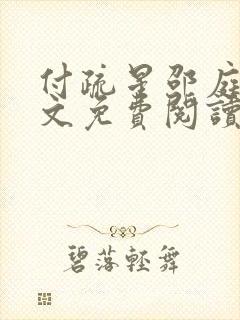 付疏星邵庭
文免費閱讀
碧落輕舞